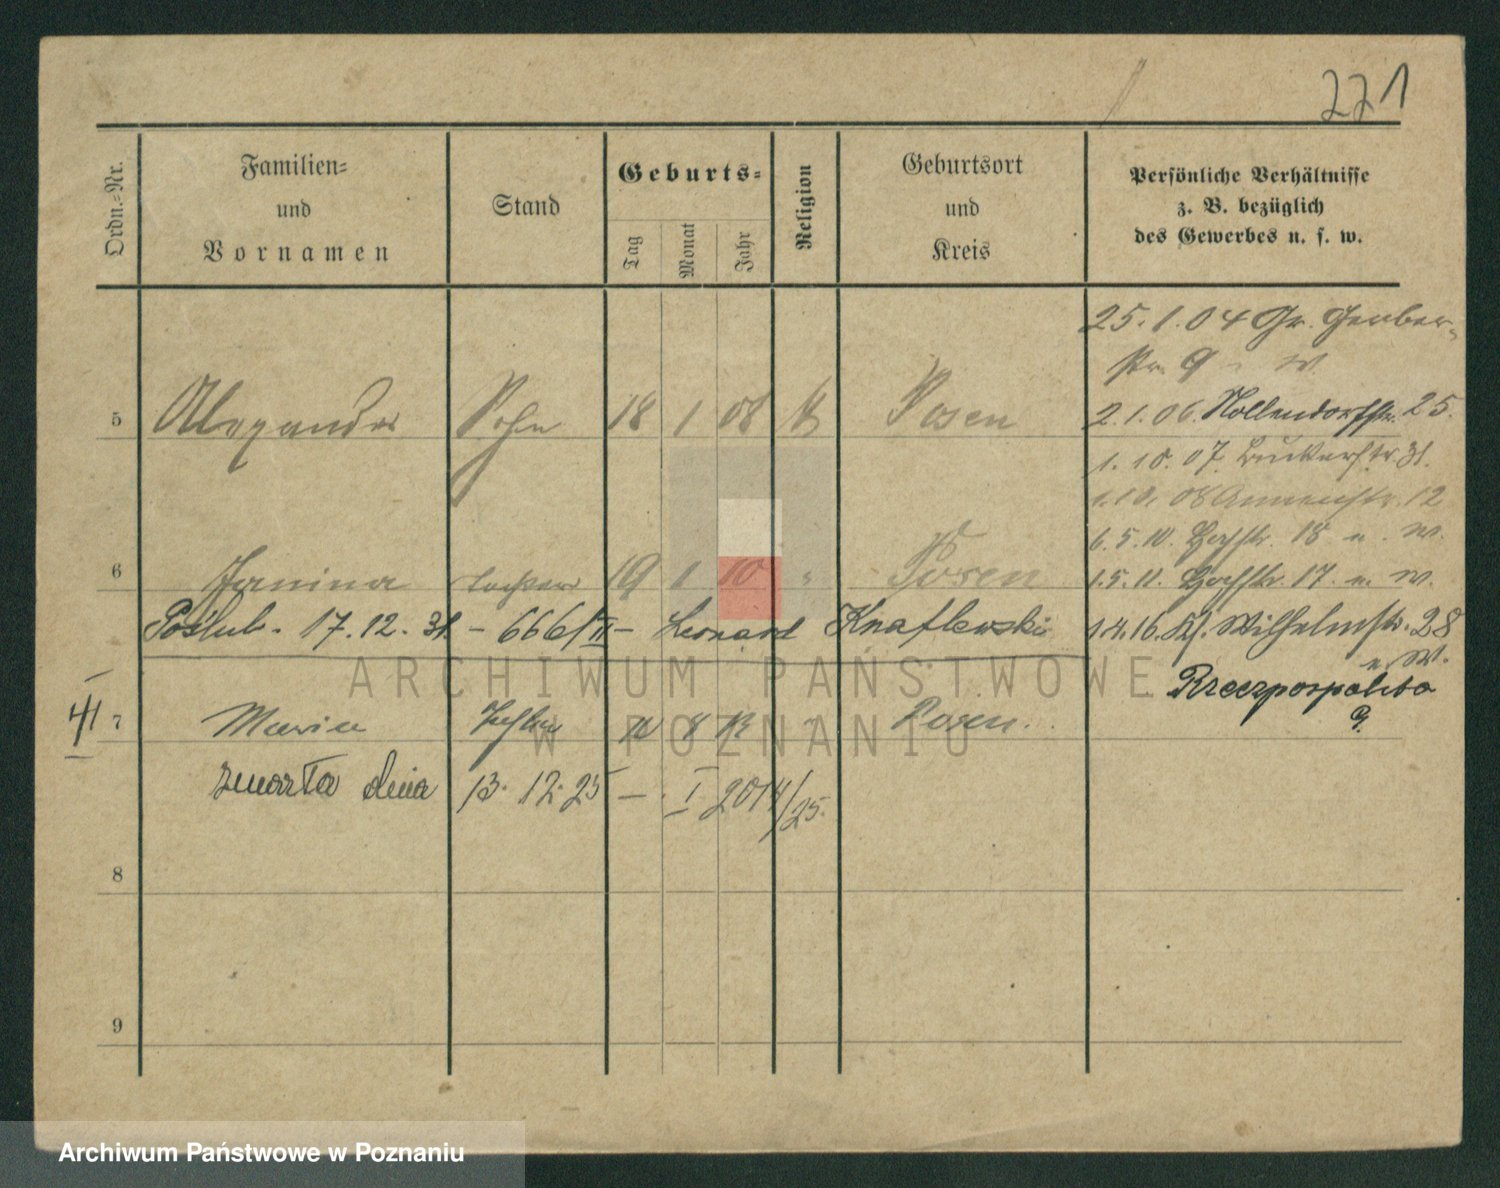 221
Ordn.-Nr.
Familien-
und
Vornamen
Stand
Geburts-
Tag
Monat
Jahr
Religion
Geburtsort
und
Kreis
Persönliche Verhältnisse
z. B. bezüglich
des Gewerbes u. s. w.
25.1.04 Gr. Gerber-
str. 9 W.
5 Alexander Sohn 18 1 08 K Posen
2.1.06. Nollendorfstr. 25.
1.10.07. 31.
1.10.08 Annenstr. 12
6.5.10. Hochstr. 18 u. W.
6 Janina Tochter 19 1 10 " Posen
1.5.11. Hochstr. 17. u. W.
Poślub. 17.12.31. - 666/II - Leonard Knaflewski
1.4.16. Kl. Wilhelmstr. 28
u. W.
Rzeczpospolita
9.
41
7 Maria Tochter 8 " Posen.
zmarła dnia 13.12.25 — I 2014/25.
8
9
ARCHIWUM PAŃSTWOWE
W POZNANIU
Archiwum Państwowe w Poznaniu